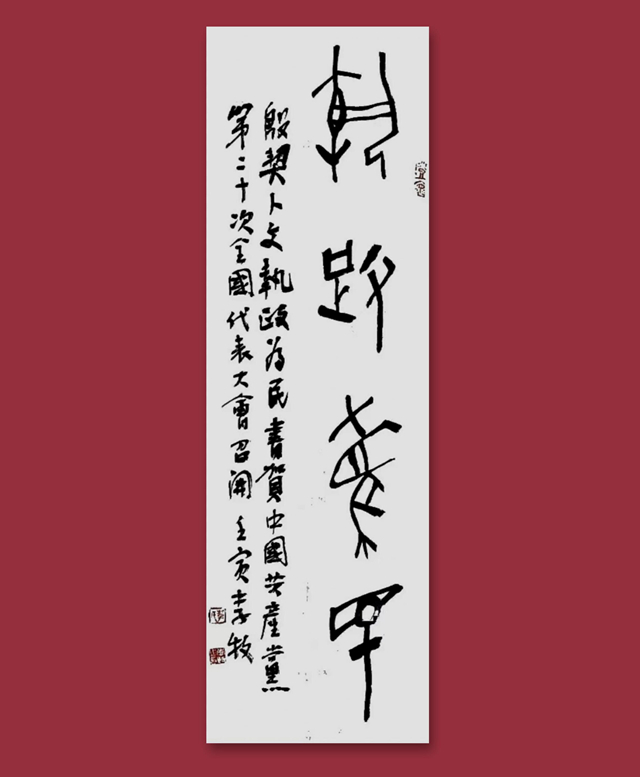 執政為民
殷契卜文執政為民書賀中國共產黨
第二十次全國代表大會召開壬寅李牧